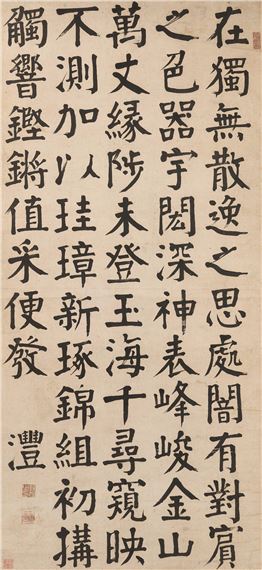 在獨無散逸之思處闇有對賓
之色器宇閎深神表峰峻金山
萬丈緣陟未登玉海千尋窺映
不測加以珪璋新琢錦組初搆
觸響鏗鏘值采便發
灃